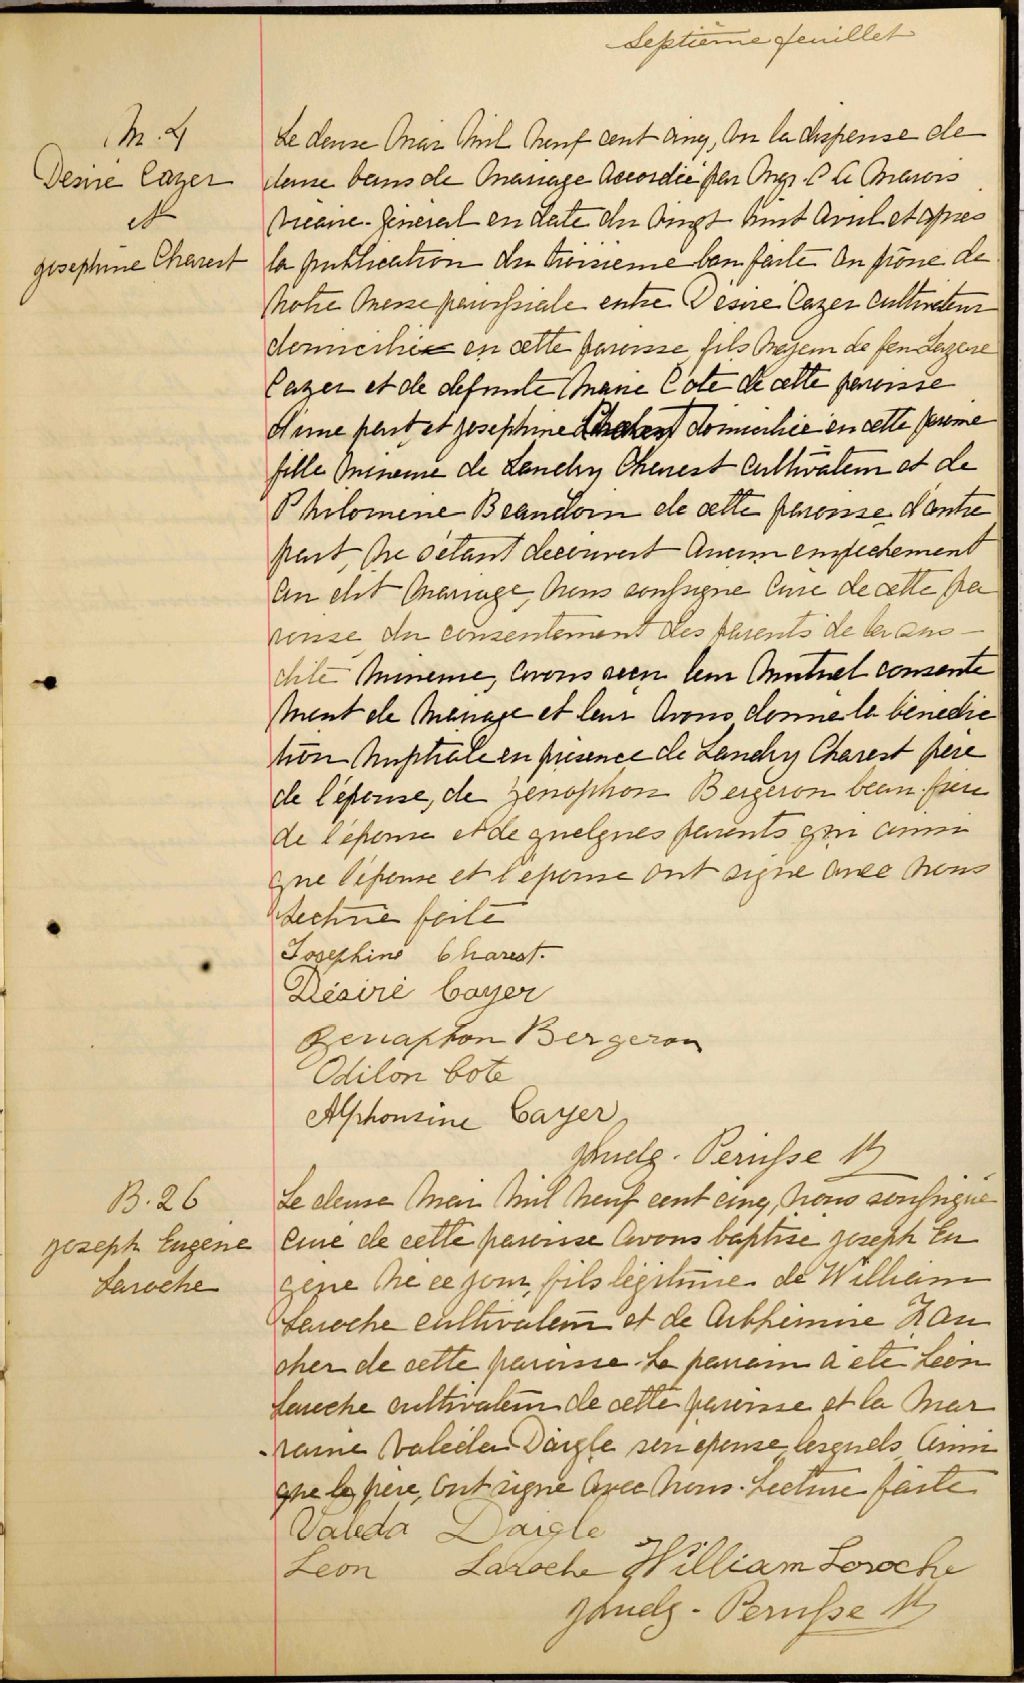 Septième feuillet
M. 4
Désiré Cayer
et
Josephine Charest
Le deux Mai Mil Neuf cent cinq, Vu la dispense de
deux bans de Mariage accordée par Mgr. C A Marois
Vicaire-Général en date du Vingt huit Avril et après
la publication du troisième ban faite au prône de
Notre Messe paroissiale entre Désiré Cayer cultivateur
domicilié en cette paroisse, fils Majeur de feu Lazare
Cayer et de defunte Marie Coté de cette paroisse
d'une part, et Josephine Charest domiciliée en cette paroisse
fille Mineure de Landry Charest cultivateur et de
Philomène Beaudoin de cette paroisse d'autre
part, Ne s'étant découvert Aucun empêchement
au dit Mariage, Nous soussigné Curé de cette pa
roisse du consentement des parents de la sus-
dite Mineure, avons reçu leur Mutuel consente
ment de Mariage et leur Avons donné la bénédic
tion Nuptiale en présence de Landry Charest père
de l'épouse, de Zénophon Bergeron beau-frère
de l'épouse et de quelques parents qui ainsi
que l'époux et l'épouse ont signé avec Nous
Lecture faite
Josephine Charest.
Désiré Cayer
Zenaphon Bergeron
Odilon Cote
Alphonsine Cayer
Perusse
B. 26
Joseph Eugène
Laroche
Le deux Mai Mil Neuf cent cinq, Nous soussigné
Curé de cette paroisse Avons baptisé Joseph Eu
gène Né ce jour, fils légitime de William
Laroche cultivateur et de Arthémise Fau
cher de cette paroisse. Le parrain a été Léon
Laroche cultivateur de cette paroisse et la Mar
raine Valéda Daigle son épouse, lesquels, Ainsi
que le père, ont signé Avec Nous. Lecture faite
Valeda Daigle
Leon Laroche William Laroche
Perusse